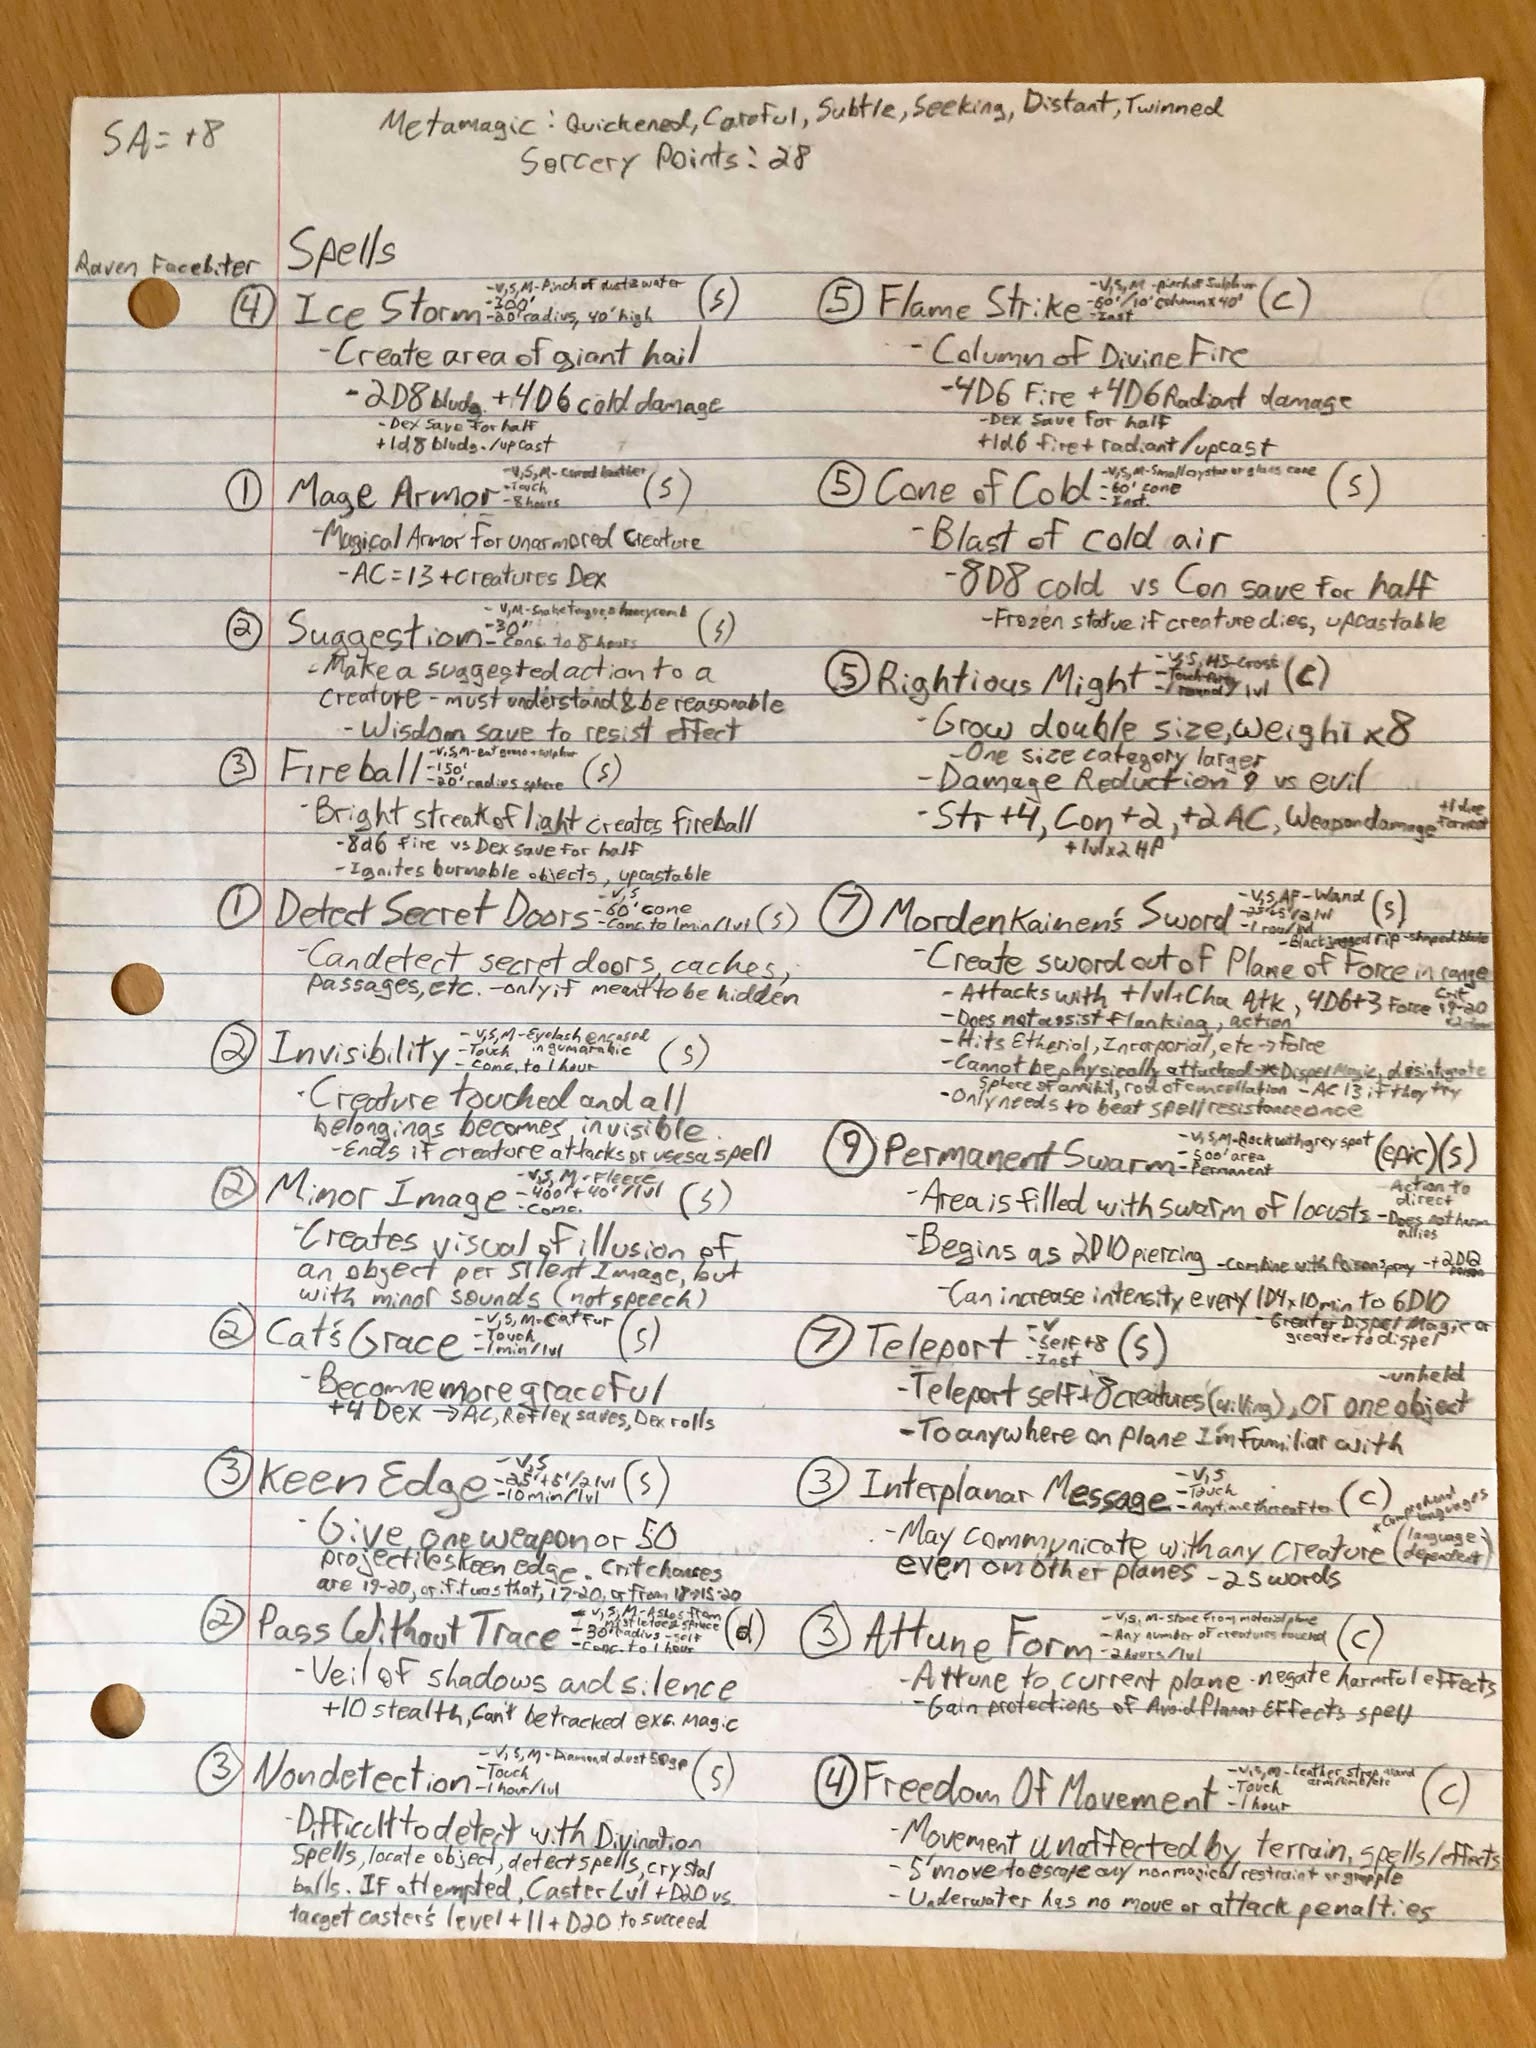 SA = +8
Metamagic: Quickened, Careful, Subtle, Seeking, Distant, Twinned
Sorcery Points: 28
Raven Facebiter
Spells
④ Ice Storm (S)
-V,S,M-Pinch of dust & water
-300'
-20' radius, 40' high
-Create area of giant hail
-2D8 bludg. +4D6 cold damage
-Dex Save for half
+1d8 bludg./upcast
① Mage Armor (S)
-V,S,M-cured leather
-Touch
-8 hours
-Magical Armor for unarmored creature
-AC=13+creatures Dex
② Suggestion (S)
-V,M-Snake tongue & honeycomb
-30'
-Conc. to 8 hours
-Make a suggested action to a
creature - must understand & be reasonable
-Wisdom save to resist effect
③ Fireball (S)
-V,S,M-bat guano + sulphur
-150'
-20' radius sphere
-Bright streak of light creates fireball
-8d6 fire vs Dex save for half
-Ignites burnable objects, upcastable
① Detect Secret Doors (S)
-V,S
-60' cone
-Conc. to 1min/lvl
-Can detect secret doors, caches,
passages, etc. - only if meant to be hidden
② Invisibility (S)
-V,S,M-Eyelash encased
in gum arabic
-Touch
-Conc. to 1 hour
-Creature touched and all
belongings becomes invisible.
-Ends if creature attacks or uses a spell
② Minor Image (S)
-V,S,M-Fleece
-400'+40'/lvl
-Conc.
-Creates visual of illusion of
an object per Silent Image, but
with minor sounds (not speech)
② Cat's Grace (S)
-V,S,M-Cat Fur
-Touch
-1min/lvl
-Become more graceful
+4 Dex → AC, Reflex saves, Dex rolls
③ Keen Edge (S)
-V,S
-25'+5'/2lvl
-10min/lvl
-Give one weapon or 50
projectiles keen edge. Crit chances
are 19-20, or if it was that, 17-20, or from 18→15-20
② Pass Without Trace (d)
-V,S,M-Ashes from
mistletoe & spruce
-30' radius - self
-Conc. to 1 hour
-Veil of shadows and silence
+10 stealth, Can't be tracked exc. magic
③ Nondetection (S)
-V,S,M-Diamond dust 50gp
-Touch
-1hour/lvl
-Difficult to detect with Divination
Spells, locate object, detect spells, crystal
balls. If attempted, Caster Lvl +D20 vs.
target caster's level +11+D20 to succeed
⑤ Flame Strike (C)
-V,S,M-pinch of Sulphur
-60'/10' column x 40'
-Inst
-Column of Divine Fire
-4D6 Fire +4D6 Radiant damage
-Dex Save for half
+1d6 fire + radiant/upcast
⑤ Cone of Cold (S)
-V,S,M-Small crystal or glass cone
-60' cone
-Inst.
-Blast of cold air
-8D8 cold vs Con save for half
-Frozen statue if creature dies, upcastable
⑤ Rightious Might (C)
-V,S, HS-Cross
-1 round/lvl
-Grow double size, weight x8
-One size category larger
-Damage Reduction 9 vs evil
-Str +4, Con +2, +2 AC, Weapon damage +1 dice
+lvlx2 HP
⑦ Mordenkainen's Sword (S)
-V,S,AF-Wand
-1 rou/lvl
-Black jagged rip-shaped blade
-Create sword out of Plane of Force in range
-Attacks with +lvl+Cha Atk, 4D6+3 Force Crit 19-20
-Does not assist flanking, action
-Hits Etherial, Incorporial, etc → force
-Cannot be physically attacked * Dispel Magic, disintegrate
Sphere of annihil, rod of cancellation - AC 13 if they try
-Only needs to beat spell resistance once
⑨ Permanent Swarm (epic)(S)
-V,S,M-Rock with grey spot
-500' area
-Permanent
-Action to
direct
-Area is filled with swarm of locusts -Does not harm
allies
-Begins as 2D10 piercing -Combine with Poison spray -+2D12
poison
-Can increase intensity every 1D4x10min to 6D10
-Greater Dispel Magic or
greater to dispel
⑦ Teleport (S)
-V
-Self+8
-Inst
-unheld
-Teleport self+8 creatures (willing), or one object
-To anywhere on plane I'm familiar with
③ Interplanar Message (C)
-V,S
-Touch
-Anytime thereafter
*Comprehend
languages
-May communicate with any creature (language
dependent)
even on other planes - 25 words
③ Attune Form (C)
-V,S,M-stone from material plane
-Any number of creatures touched
-2hours/lvl
-Attune to current plane - negate harmful effects
-Gain protections of Avoid Planar Effects spell
④ Freedom Of Movement (C)
-V,S,M-Leather strap, around
arm/limb/etc
-Touch
-1hour
-Movement unaffected by terrain, spells/effects
-5' move to escape any nonmagical restraint or grapple
-Underwater has no move or attack penalties